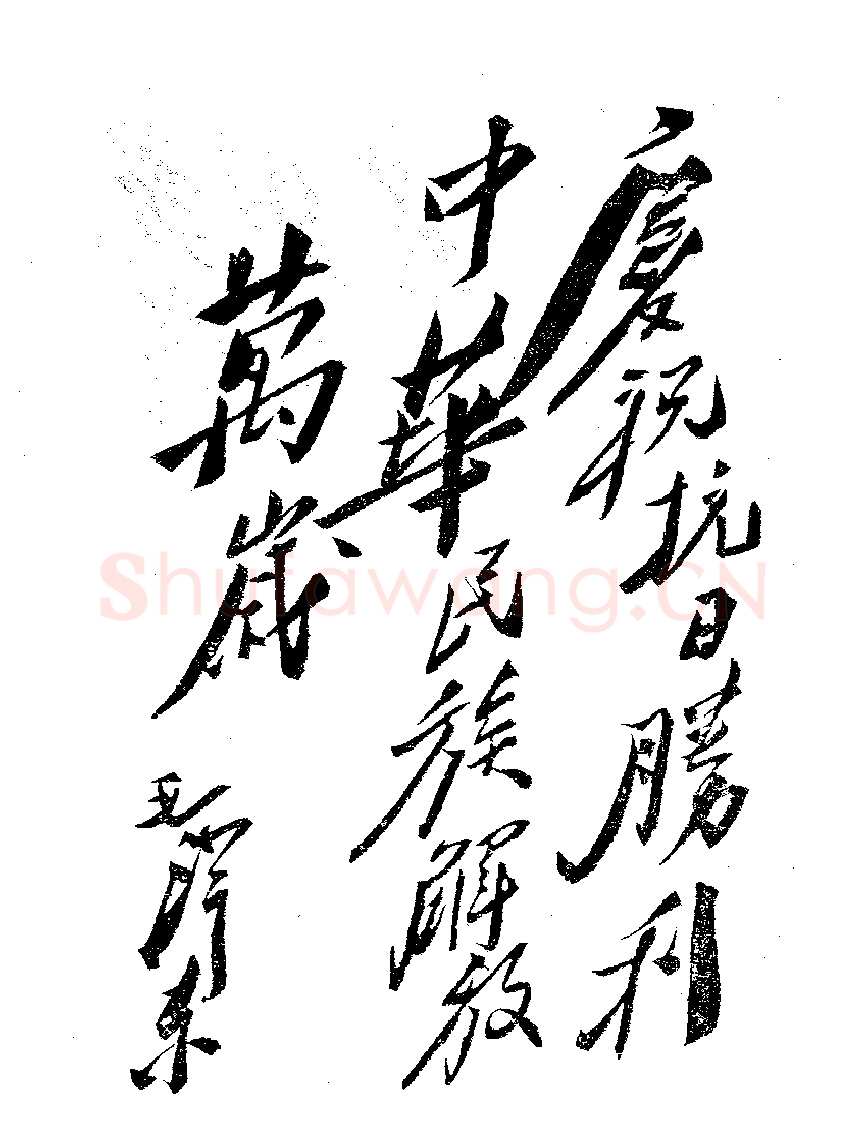 慶祝抗日勝利
中華民族解放
萬歲
毛澤東
Shufawang.CN